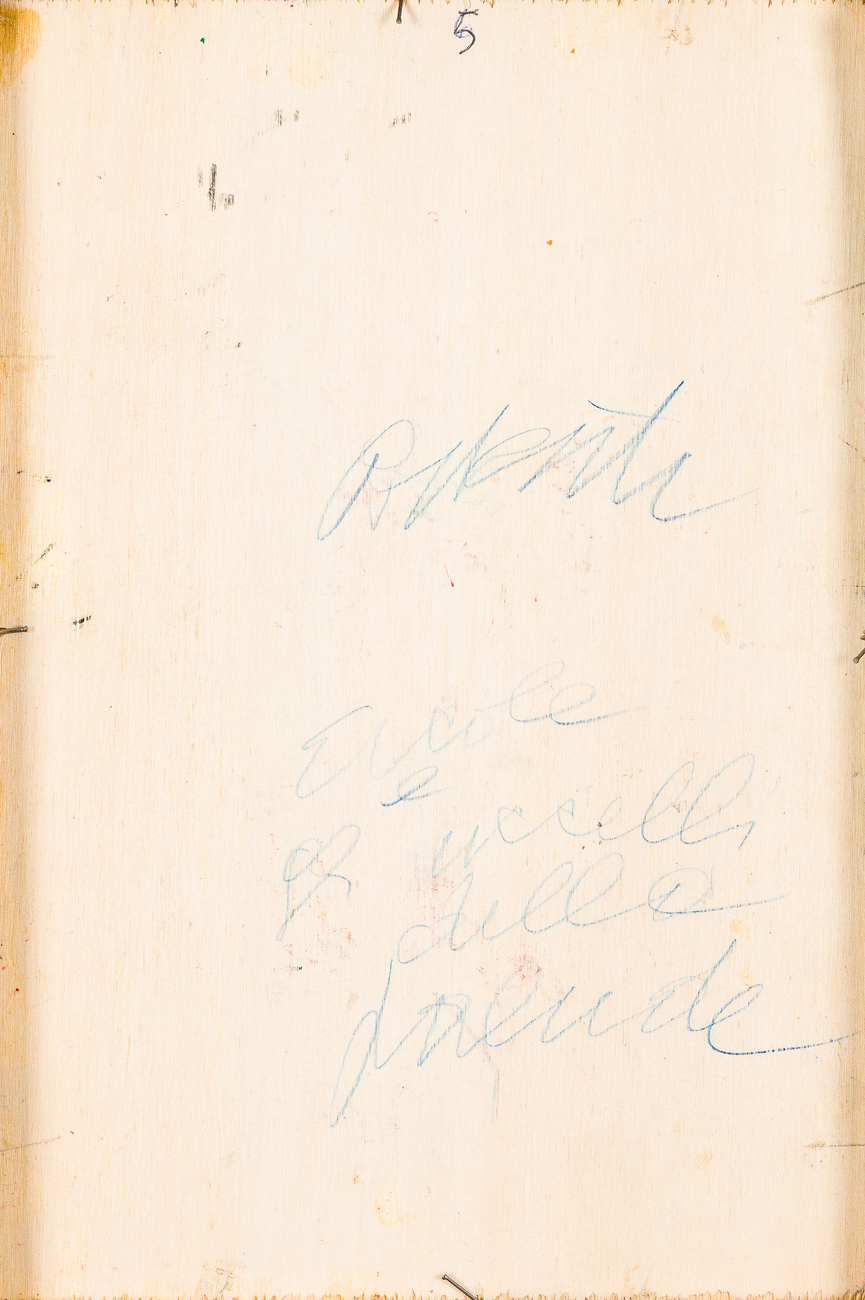 5
Ercole
e
gli uccelli
della
palude